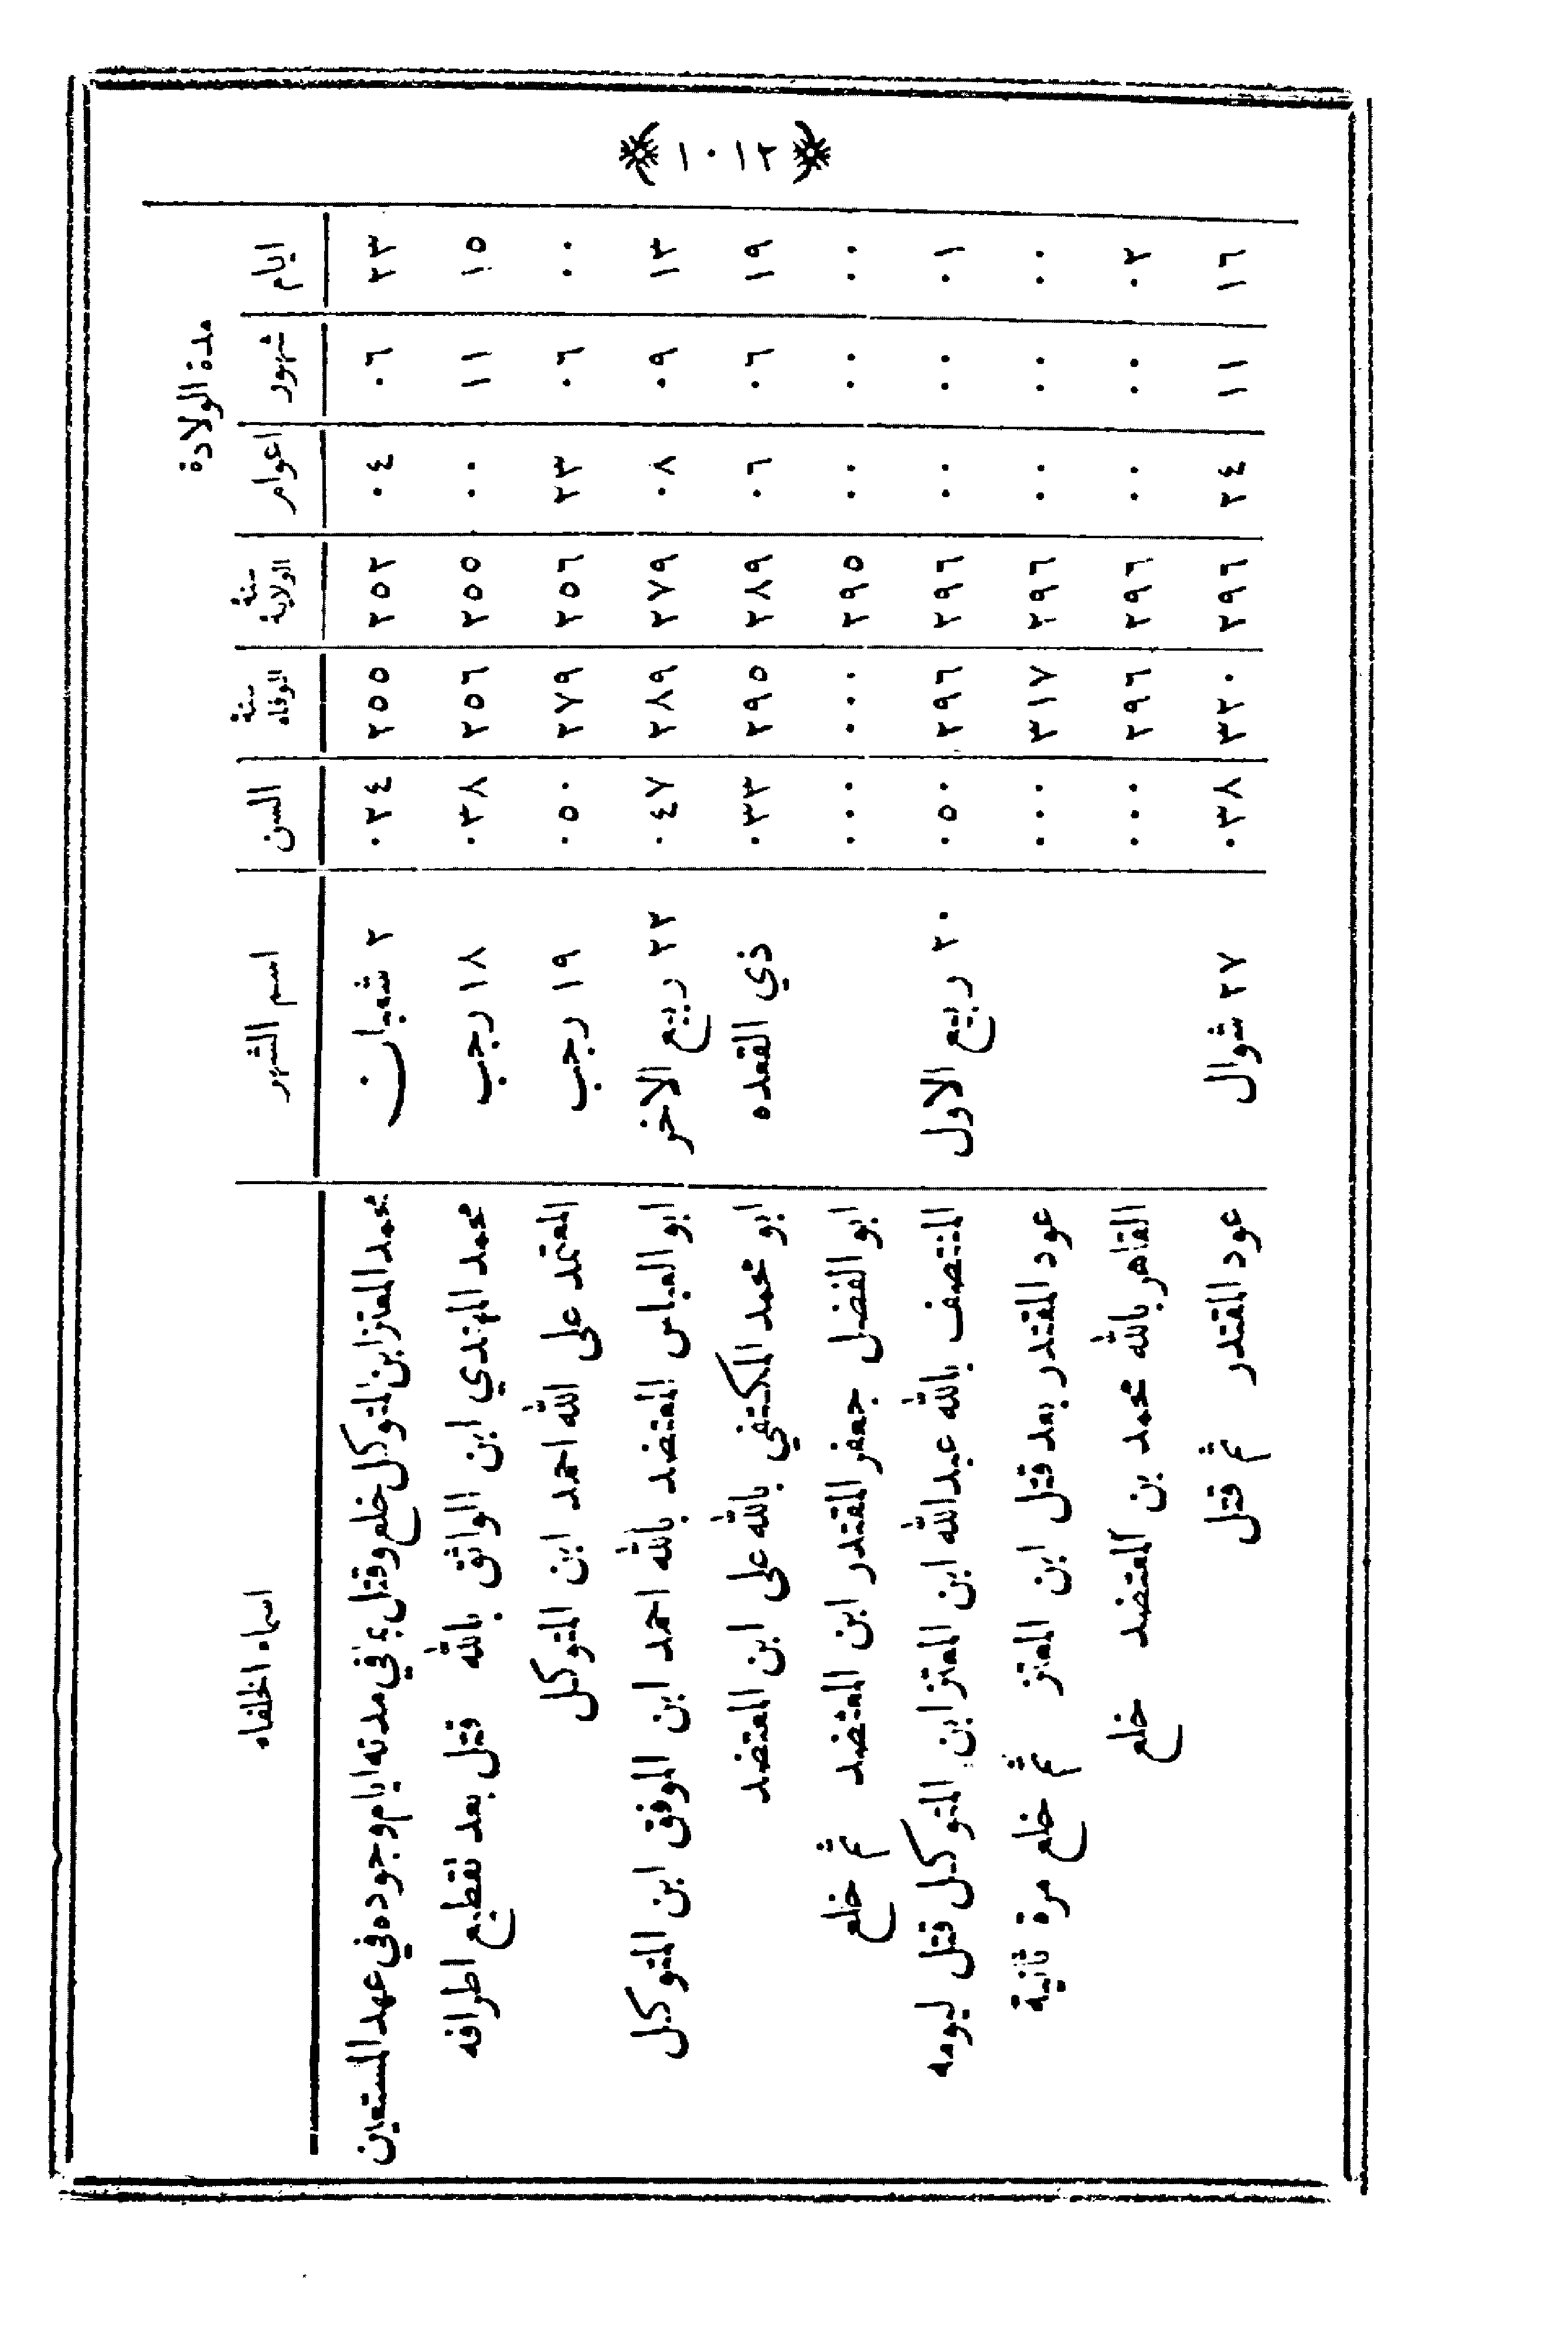 ١٠١٢
مدة الولادة
ايام شهور اعوام سنة الولاية سنة الوفاه السن اسم الشهر اسماء الخلفاء
٢٣ ٠٦ ٠٤ ٢٥٢ ٢٥٥ ٠٢٤ ٢ شعبان محمد المعتز ابن المتوكل خلع وقتل بقي في مدته ايام وجوده في عهد المستعين
١٥ ١١ ٠٠ ٢٥٥ ٢٥٦ ٠٣٨ ١٨ رجب محمد المهتدي ابن الواثق بالله قتل بعد تقطيع اطرافه
٠٠ ٠٦ ٢٣ ٢٥٦ ٢٧٩ ٠٥٠ ١٩ رجب المعتمد على الله احمد ابن المتوكل
١٣ ٠٩ ٠٨ ٢٧٩ ٢٨٩ ٠٤٧ ٢٢ ربيع الاخر ابو العباس المعتضد بالله احمد ابن الموفق ابن المتوكل
١٩ ٠٦ ٠٦ ٢٨٩ ٢٩٥ ٠٣٣ ذي القعده ابو محمد المكتفي بالله على ابن المعتضد
٠٠ ٠٠ ٠٠ ٢٩٥ ٠٠٠ ٠٠٠ ابو الفضل جعفر المقتدر ابن المعتضد ثم خلع
٠١ ٠٠ ٠٠ ٢٩٦ ٢٩٦ ٠٥٠ ٢٠ ربيع الاول المنتصف بالله عبدالله ابن المعتز ابن المتوكل قتل ليومه
٠٠ ٠٠ ٠٠ ٢٩٦ ٣١٧ ٠٠٠ عود المقتدر بعد قتل ابن المعتز ثم خلع مرة ثانية
٠٢ ٠٠ ٠٠ ٢٩٦ ٢٩٦ ٠٠٠ القاهر بالله محمد بن المعتضد خلع
١٦ ١١ ٢٤ ٢٩٦ ٣٢٠ ٠٣٨ ٢٧ شوال عود المقتدر ثم قتل